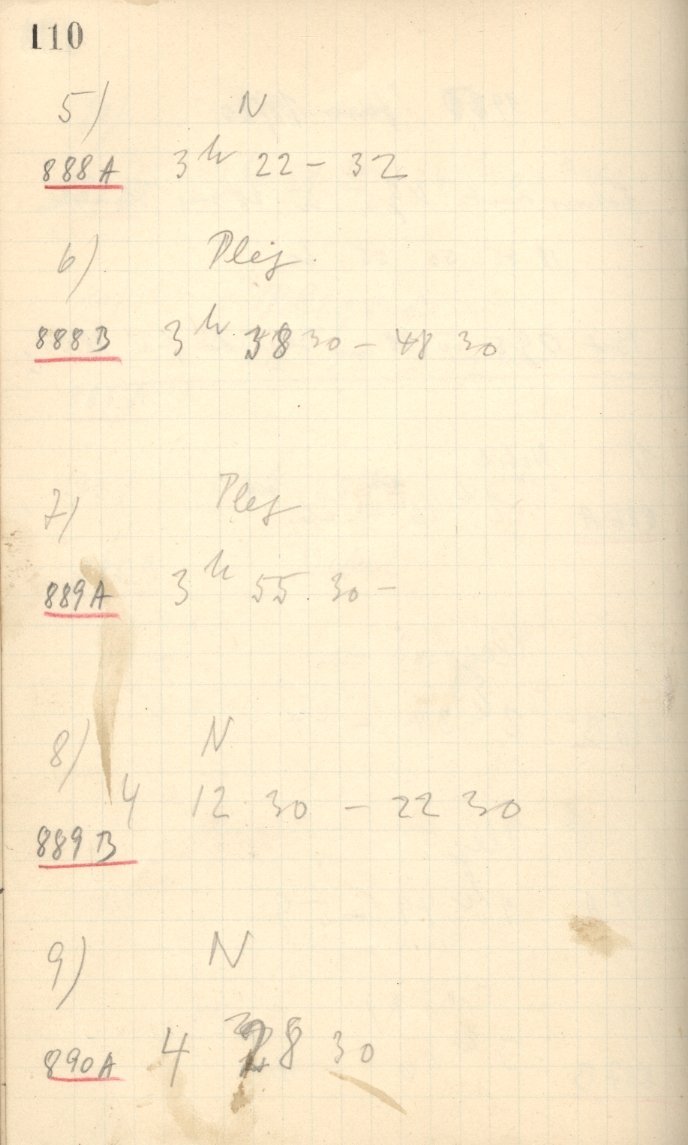 110
5) N
888A 3h 22 - 32
6) Plej.
888B 3h 38 30 - 48 30
7) Plej
889A 3h 55 30 -
8) N
4 12 30 - 22 30
889B
9) N
890A 4 28 30